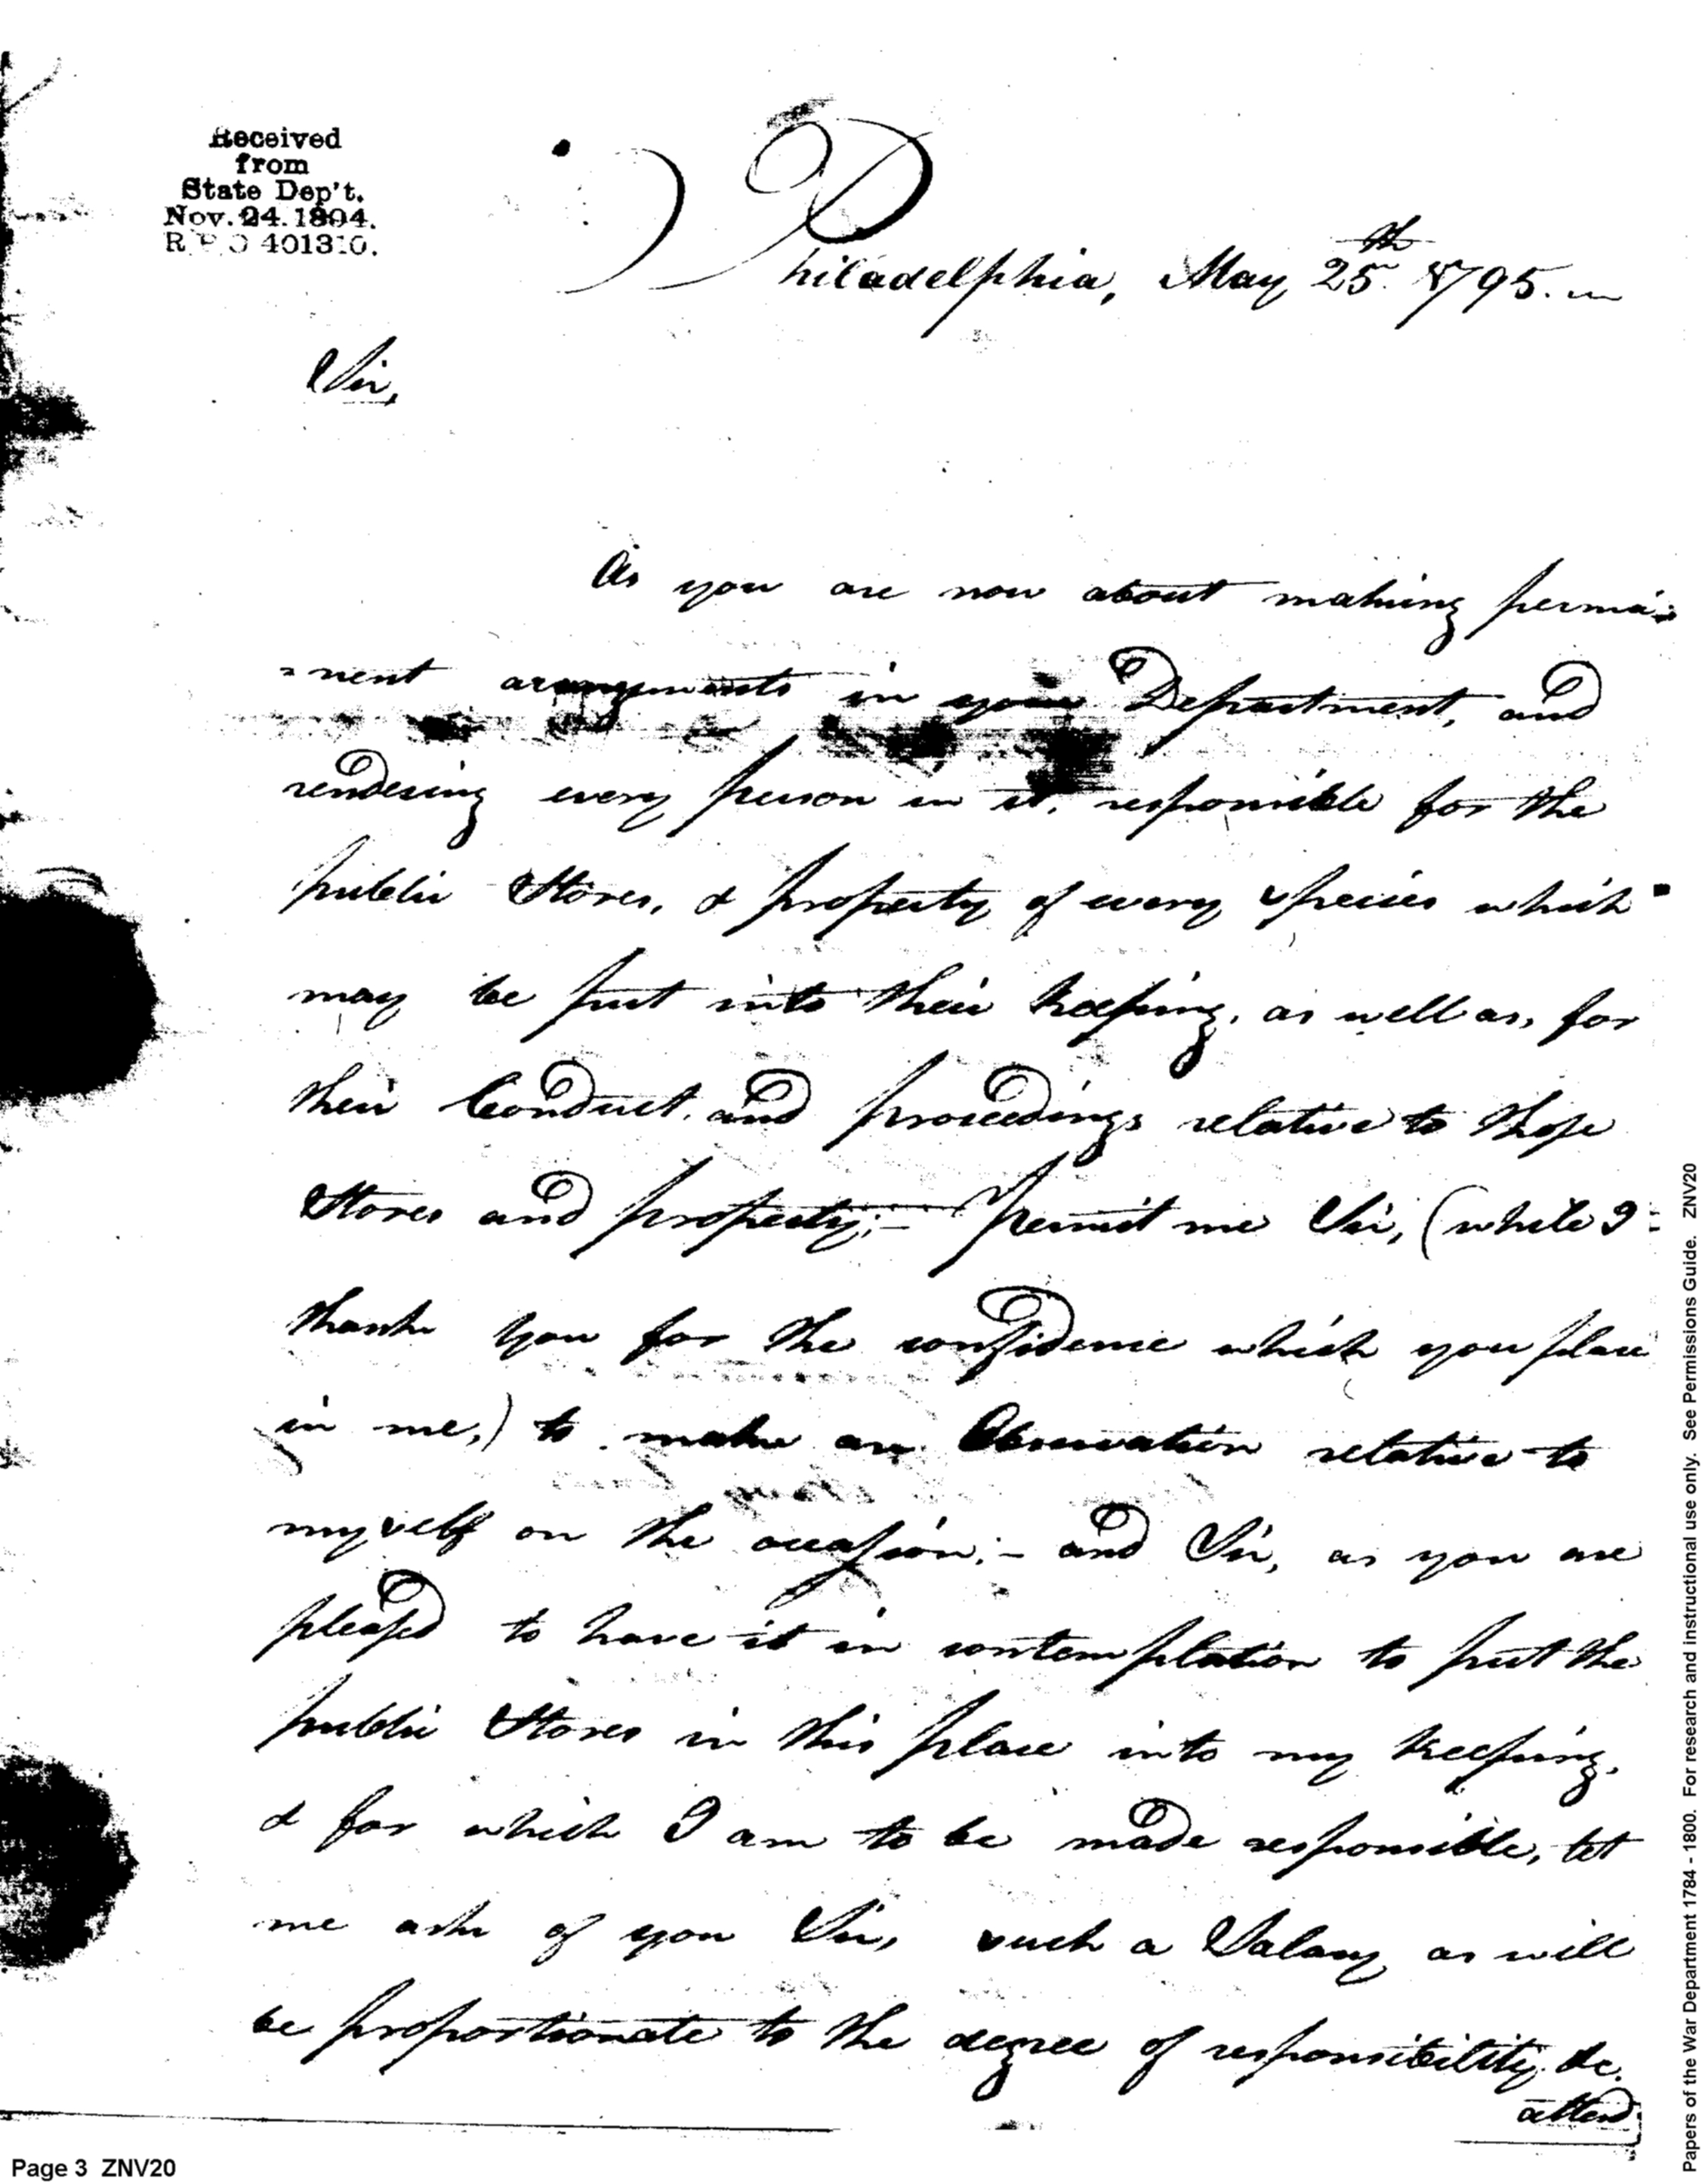 Received
from
State Dep't.
Nov. 24. 1894.
R P O 401310.
Philadelphia, May 25th. 1795.
Sir,
As you are now about making perma=
=nent arangements in your Department, and
rendering every person in it, responsible for the
public Stores, & property of every species which
may be put into their keeping, as well as, for
their Conduct, and proceedings relative to those
Stores and property;— permit me Sir, (while I
thank you for the confidence which you place
in me,) to make an Observation relative to
myself on the occasion;— and Sir, as you are
pleased to have it in contemplation to put the
public Stores in this place into my keeping,
& for which I am to be made responsible, let
me ask of you Sir, such a Salary as will
be proportionate to the degree of responsibility &c.
attend
Page 3 ZNV20
Papers of the War Department 1784 - 1800. For research and instructional use only. See Permissions Guide. ZNV20